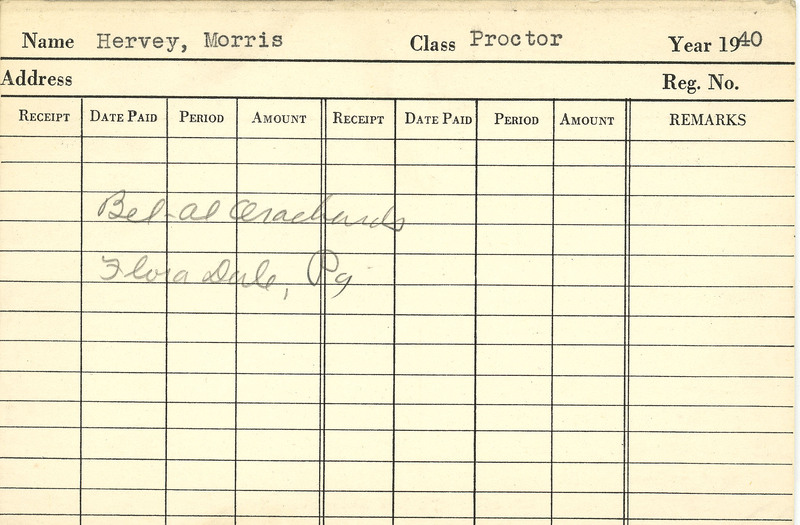 Name Hervey, Morris Class Proctor Year 1940
Address Reg. No.
RECEIPT DATE PAID PERIOD AMOUNT RECEIPT DATE PAID PERIOD AMOUNT REMARKS
Bel-al Orachards
Flora Dale, Pa